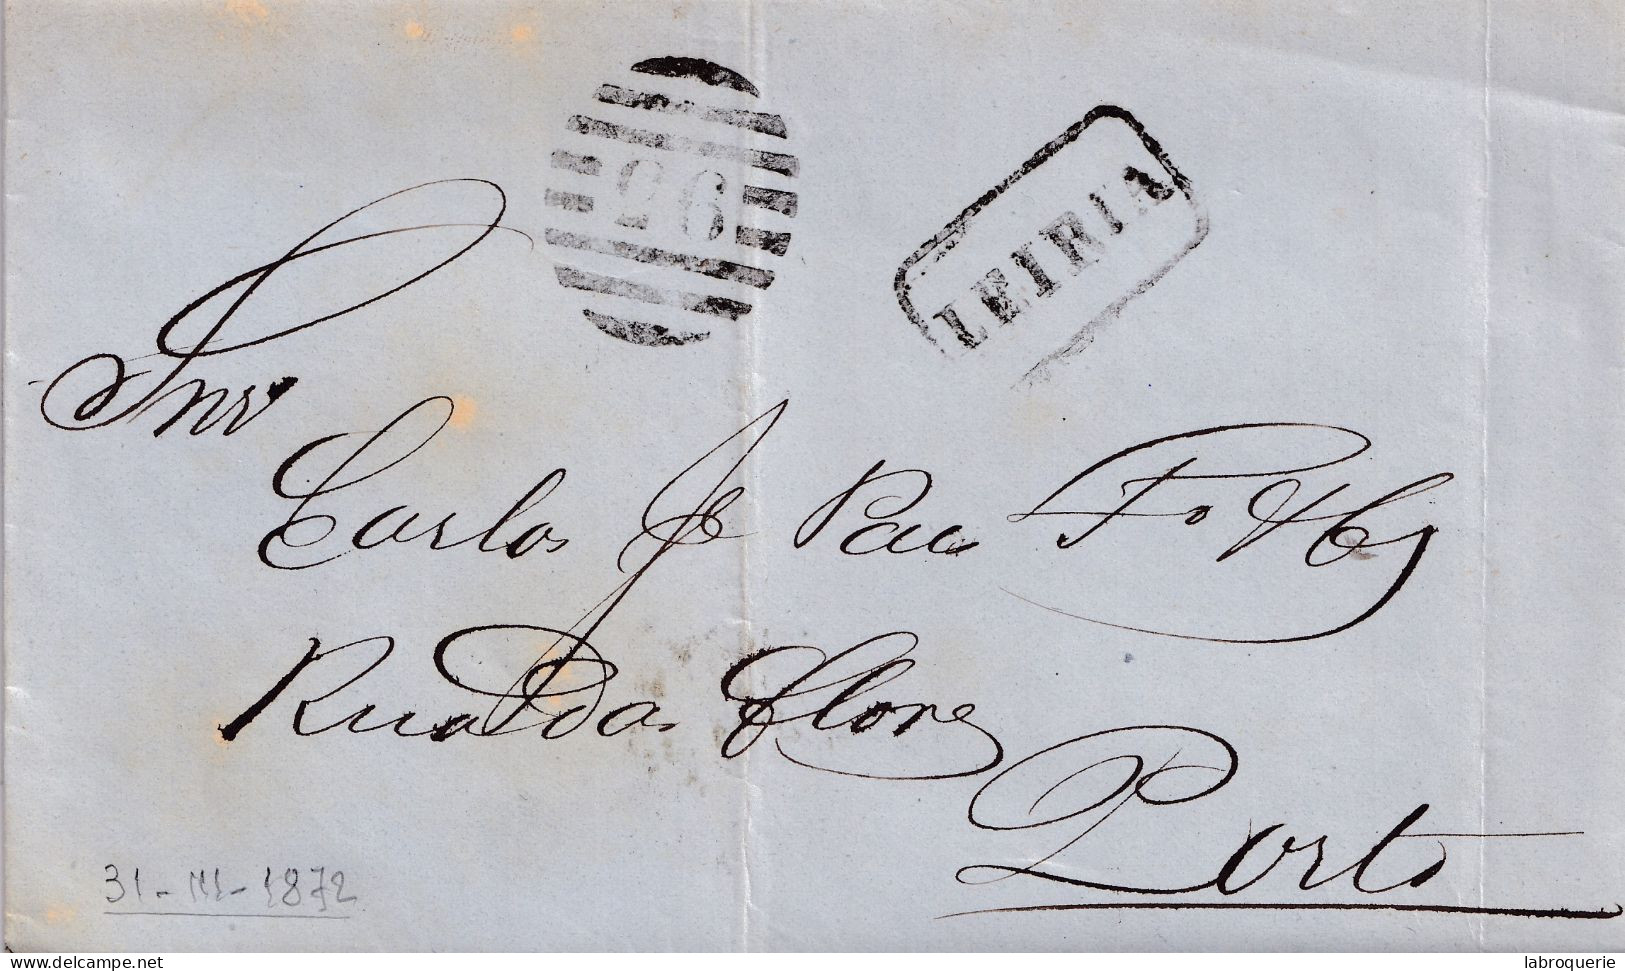 96
LEIRIA
Snr
Carlos J de
Rua das Flores
Porto
31-III-1872
www.delcampe.net
labroquerie